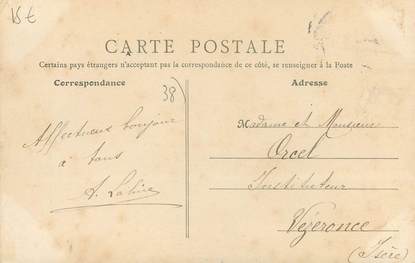 15 €
CARTE POSTALE
Certains pays étrangers n'acceptant pas la correspondance de ce côté, se renseigner à la Poste
Correspondance
Adresse
38)
Affectueux bonjour
à tous
A.
Madame et Monsieur
Orcel
Instituteur
Vézeronce
(Isère)